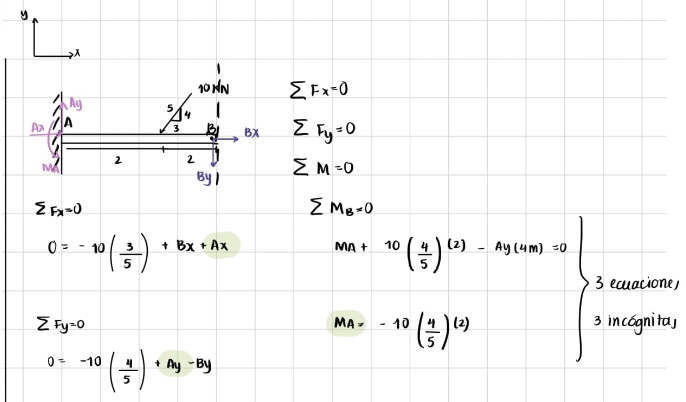 y
x
10 kN
5
4
3
Ay
A
Ax
MA
B
Bx
By
2
2
Σ Fx=0
Σ Fy=0
Σ M=0
Σ Fx=0
0 = - 10 ( 3/5 ) + Bx + Ax
Σ Fy=0
0 = -10 ( 4/5 ) + Ay - By
Σ MB=0
MA + 10 ( 4/5 ) (2) - Ay (4m) =0
MA= - 10 ( 4/5 ) (2)
3 ecuaciones
3 incógnitas